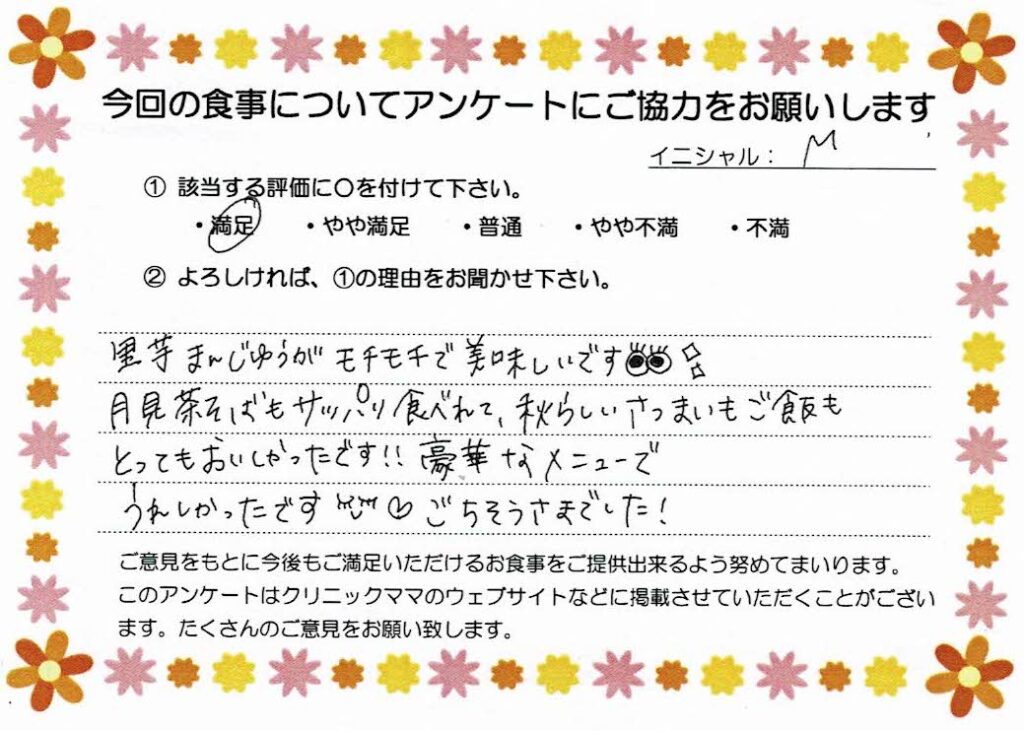 今回の食事についてアンケートにご協力をお願いします
イニシャル： M
① 該当する評価に○を付けて下さい。
・満足 ・やや満足 ・普通 ・やや不満 ・不満
② よろしければ、①の理由をお聞かせ下さい。
里芋まんじゅうがモチモチで美味しいです
月見茶そばもサッパリ食べれて、秋らしいさつまいもご飯も
とってもおいしかったです!! 豪華なメニューで
うれしかったです ♡ ごちそうさまでした！
ご意見をもとに今後もご満足いただけるお食事をご提供出来るよう努めてまいります。
このアンケートはクリニックママのウェブサイトなどに掲載させていただくことがござい
ます。たくさんのご意見をお願い致します。